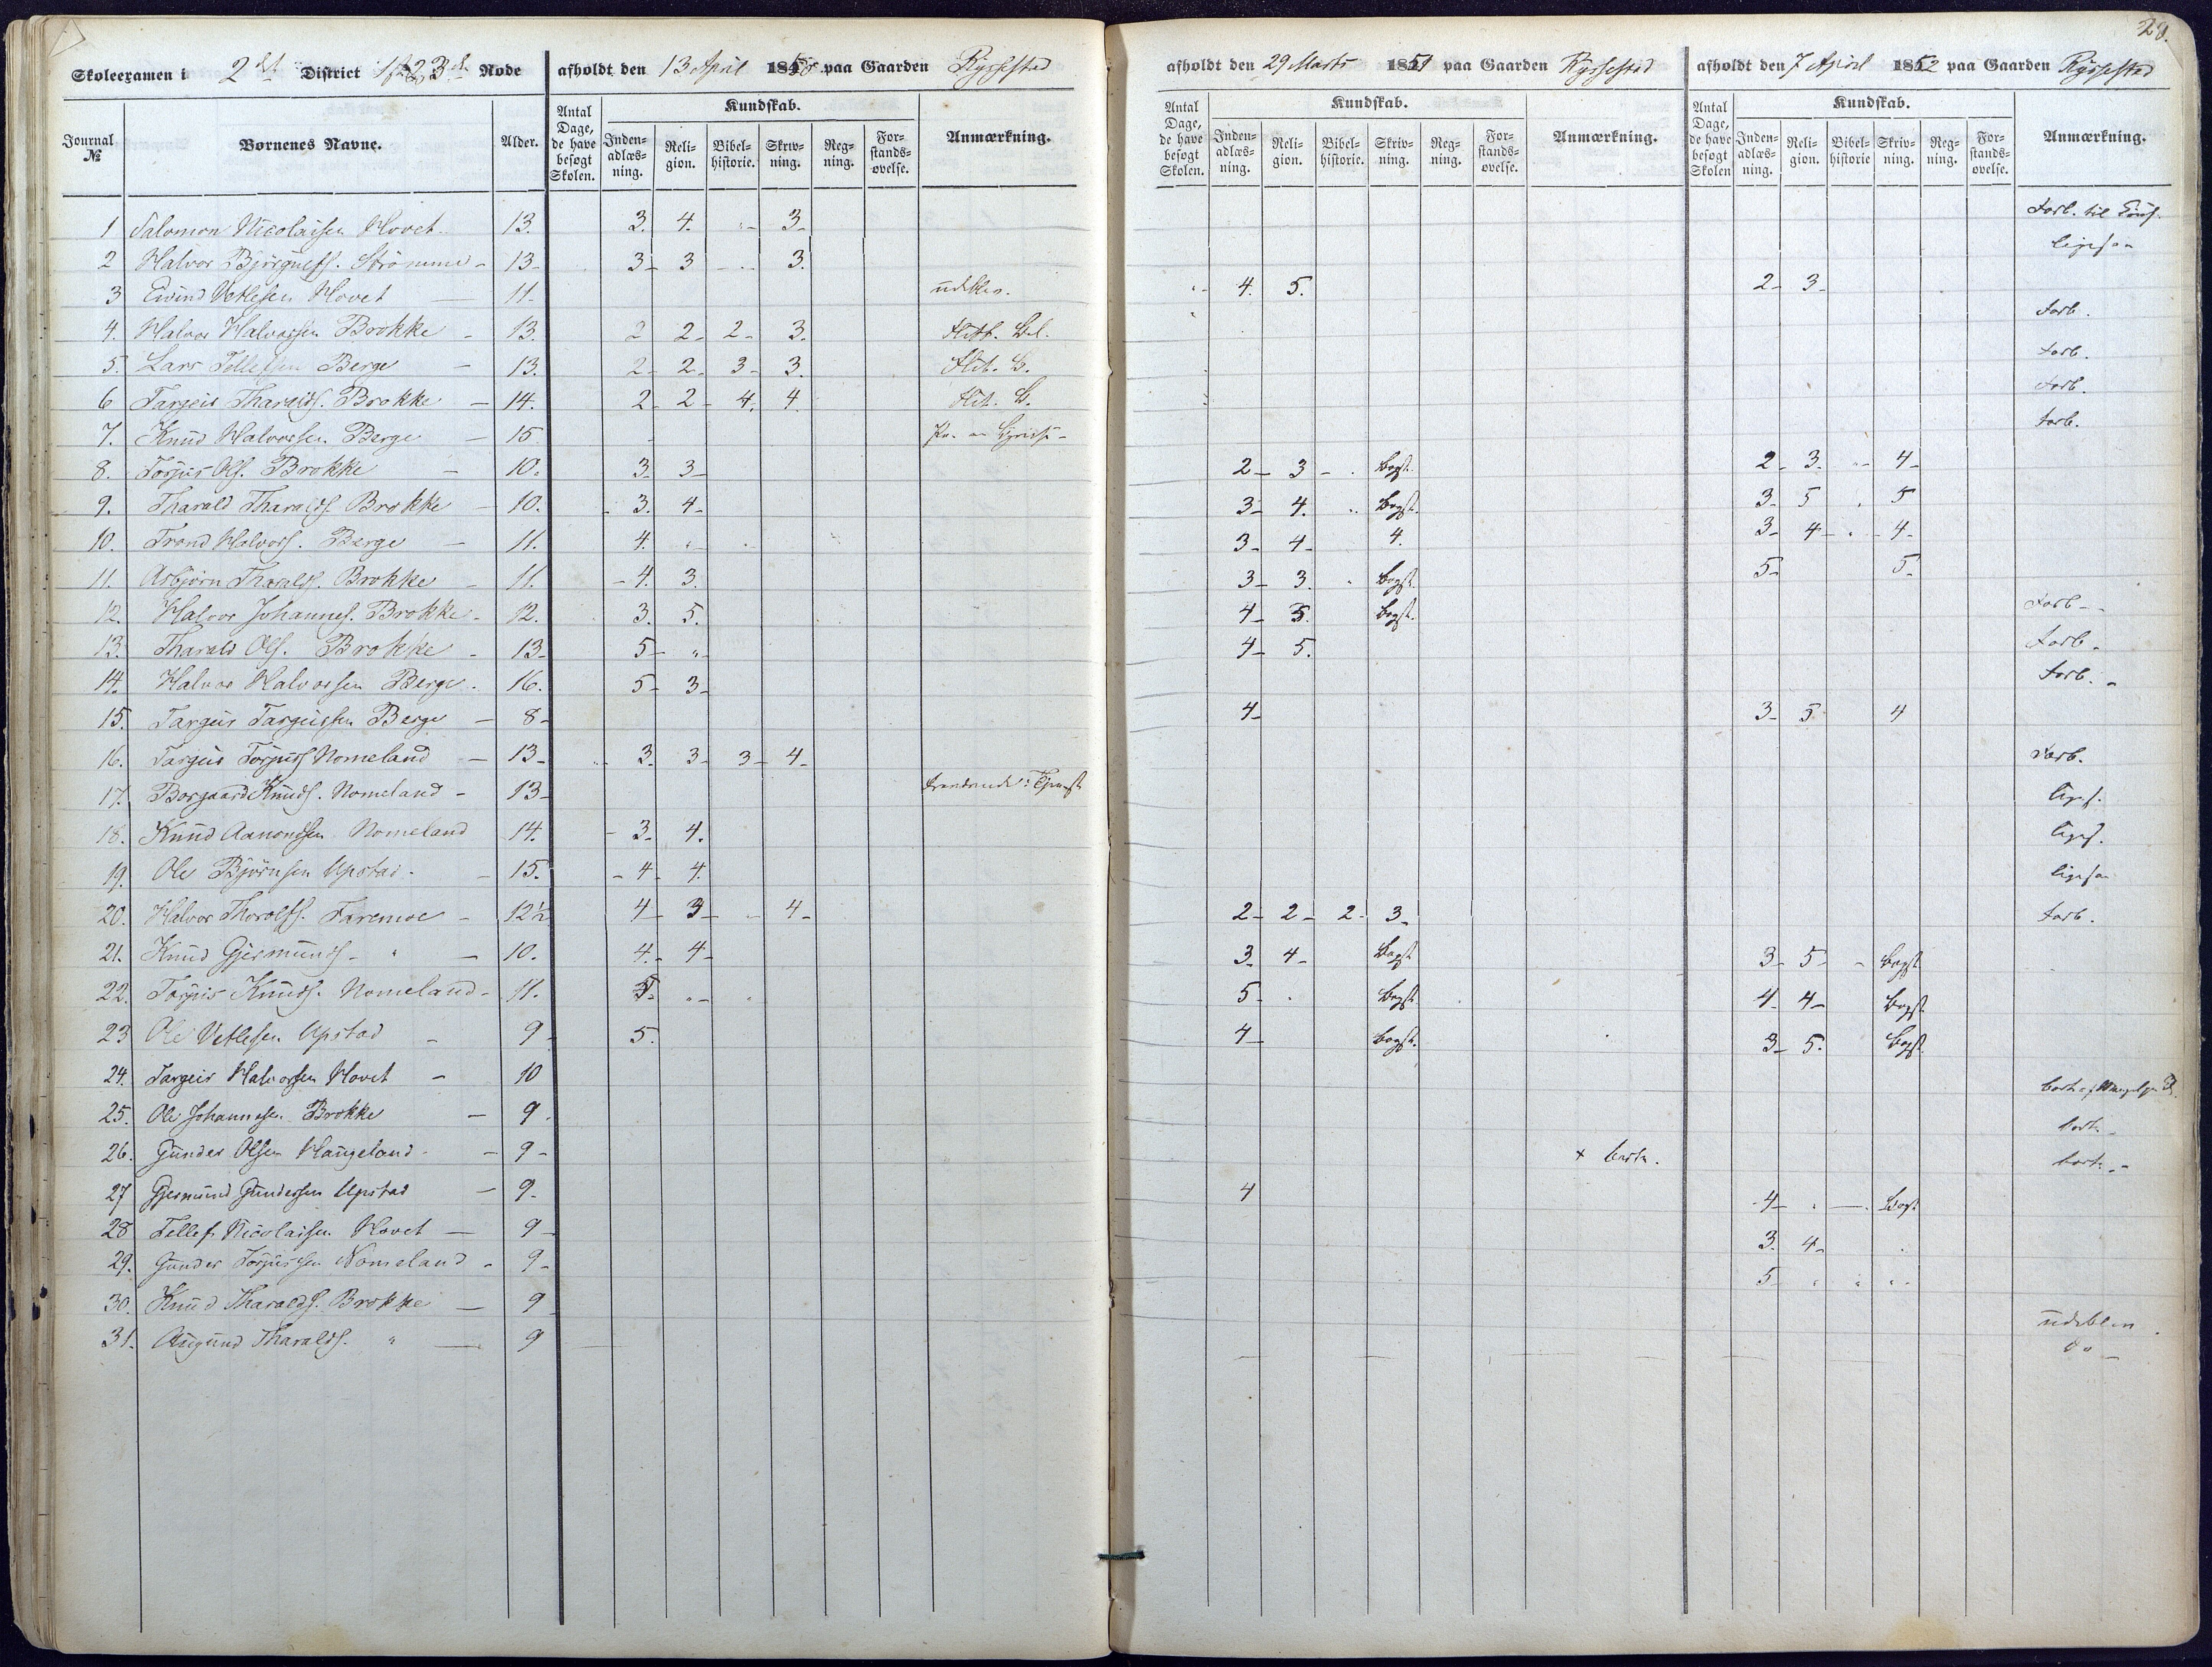 28.
Skoleexamen i 2det District 1ste 2 3de Rode afholdt den 13 April 1850 paa Gaarden Ryssestad
afholdt den 29 Marts 1851 paa Gaarden Ryssestad
afholdt den 7 April 1852 paa Gaarden Ryssestad
Journal № Børnenes Navne. Alder. Antal Dage, de have besøgt Skolen. Kundskab. Indenadlæsning. Religion. Bibelhistorie. Skrivning. Regning. Forstandsøvelse. Anmærkning.
Antal Dage, de have besøgt Skolen. Kundskab. Indenadlæsning. Religion. Bibelhistorie. Skrivning. Regning. Forstandsøvelse. Anmærkning.
Antal Dage, de have besøgt Skolen Kundskab. Indenadlæsning. Religion. Bibelhistorie Skrivning. Regning. Forstandsøvelse. Anmærkning.
1 Salomon Nicolaisen Hovet 13. 3. 4. 3 Forb. til
2 Halvor Bjørgulfs. Strømme 13 3 3 3. ligesaa
3 Eivind Vetlesen Hovet 11 udebl. 4. 5. 2 3
4. Halvor Halvorsen Brokke 13. 2 2 2 3. Flitt. Bel. Forb.
5. Lars Tellefsen Berge 13. 2 2 3 3. Flit. B. Forb.
6 Targeis Tharalds. Brokke 14. 2 2 4. 4. Flit. B. Forb.
7. Knud Halvorsen Berge 15 Forb.
8. Torjus Ols. Brokke 10. 3 3 2 3 Bogst. 2 3 4
9. Tharald Tharalds. Brokke 10. 3. 4 3 4. Bogst. 3 5 5
10. Trond Halvors. Berge 11. 4. 3 4 4. 3 4 4
11. Asbjørn Tharalds. Brokke 11. 4. 3. 3 3 Bogst. 5 5
12. Halvor Johannes. Brokke 12. 3. 5. 4 5. Bogst. Forb
13. Tharald Ols. Brokke 13 5 " 4 5. Forb
14. Halvor Halvorsen Berge 16. 5 3 Forb.
15. Targeis Targeissen Berge 8 4 3 5 4
16. Targeis Torjuss. Nomeland 13 3. 3 3 4 Forb.
17. Borgaard Knuds. Nomeland 13 liges.
18. Knud Aamondsen Nomeland 14. 3. 4. liges.
19. Ole Bjørnsen Upstad 15. 4 4. ligesaa
20. Halvor Thorolfs. Faremoe 12½ 4 3 4 2 2 2 3 Forb.
21. Knud Gjermunds. " 10. 4. 4 3 4 Bogst 3 5 Bogst
22. Torjuis Knuds. Nomeland 11. 5. 5 Bogst. 4 4 Bogst.
23 Ole Vetlesen Upstad 9 5. 4 Bogst. 3 5. Bogst.
24. Targeis Halvorsen Hovet 10
25. Ole Johannesen Brokke 9 borte
26. Gunder Olsen Haugeland 9 + borte. borte.
27 Gjermund Gundersen Upstad 9. 4 4 Bogst
28 Tellef Nicolaisen Hovet 9 3. 4
29. Gunder Torjussen Nomeland 9 5
30. Knud Tharalds. Brokke 9 udebleven
31. Augund Tharalds. " 9 do